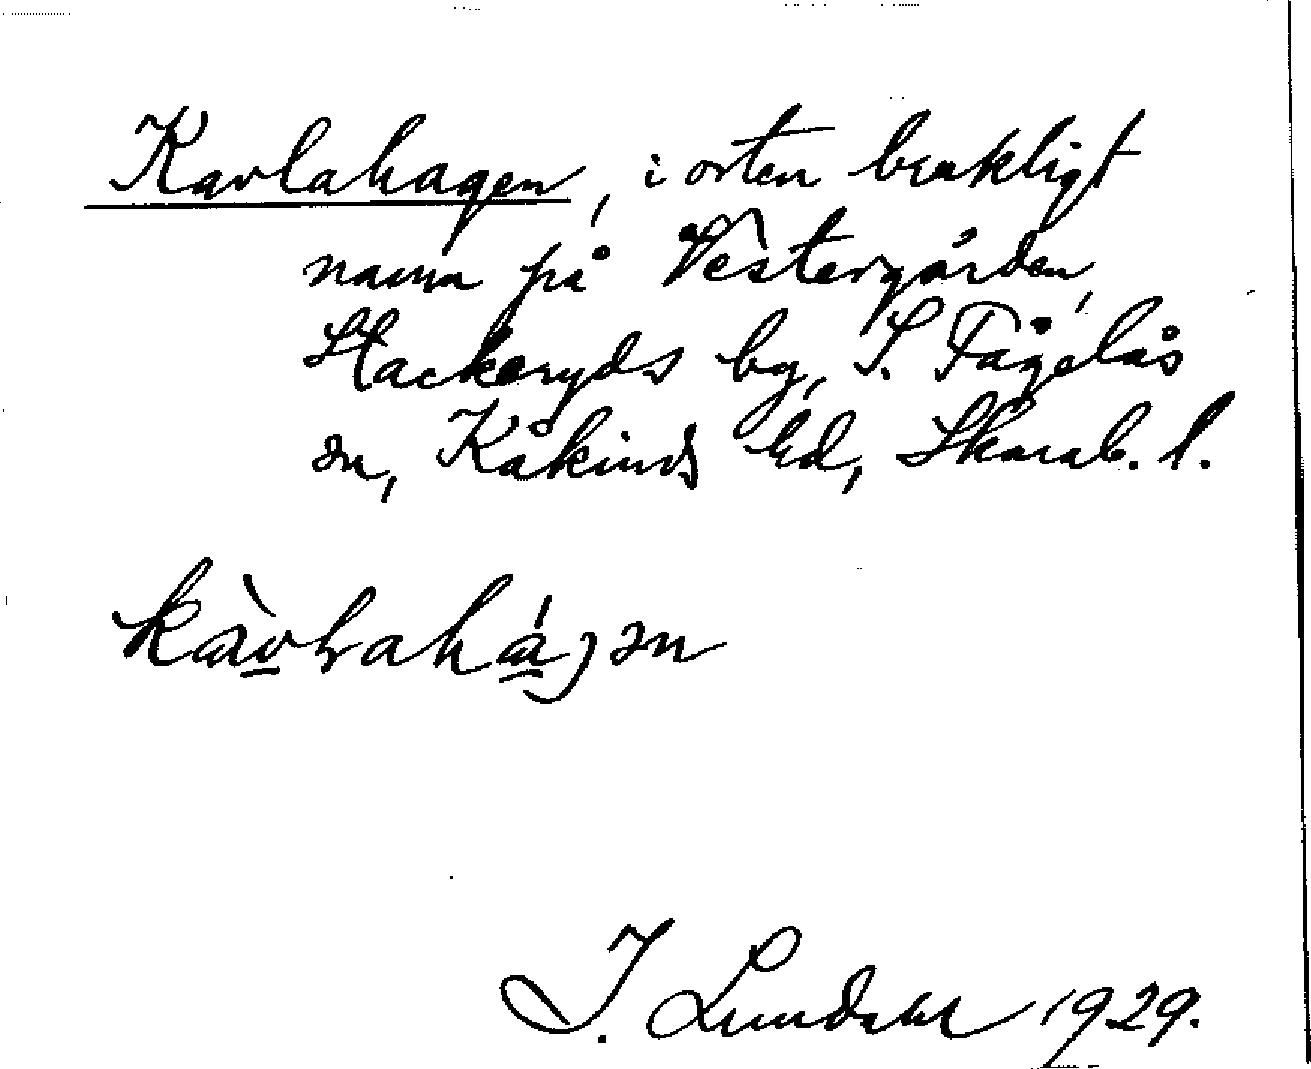 Kavlahagen, i orten brukligt
namn på Västergården,
Stackeryds by, S. Fågelås
sn, Kåkinds hd, Skarab. l.
J. Lundahl 1929.